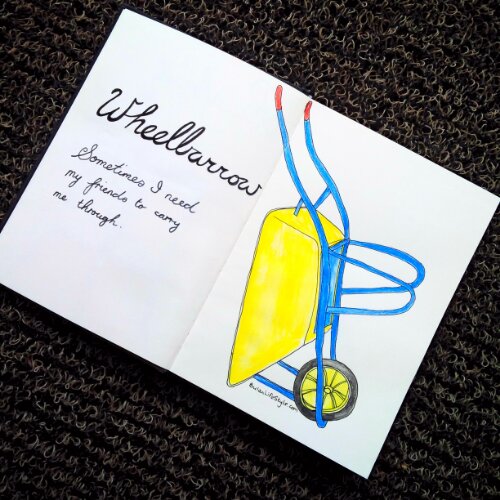 Wheelbarrow
Sometimes I need
my friends to carry
me through.